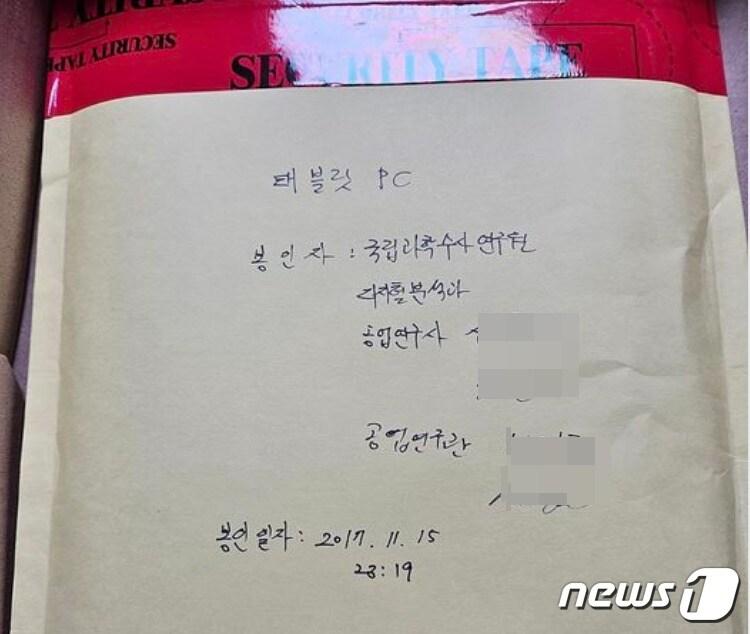 SECURITY T
SECURITY TAPE
SECURITY TAPE
태블릿 PC
봉인자 : 국립과학수사연구원
디지털분석과
공업연구사
공업연구관
봉인일자 : 2017. 11. 15
23:19
news1